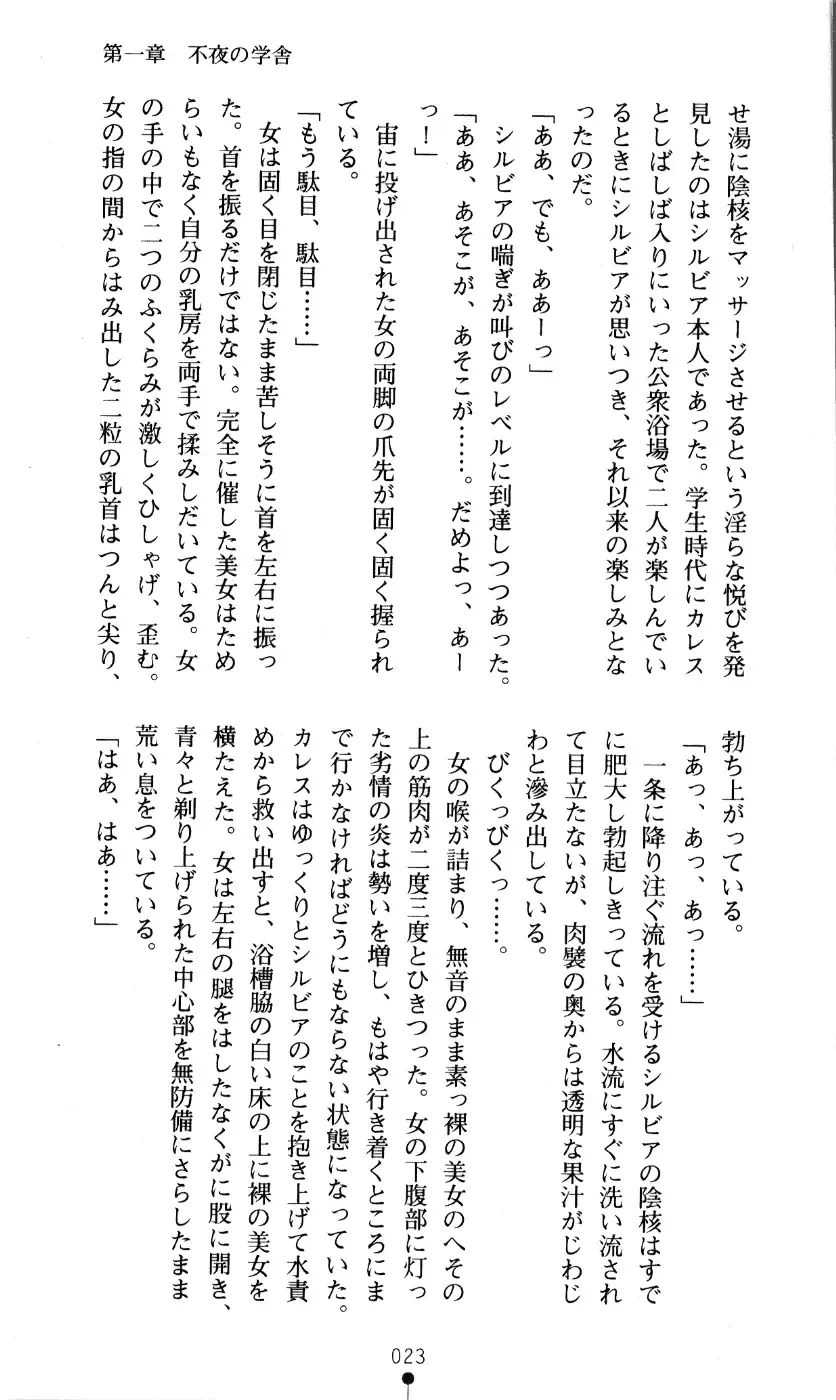 第一章　不夜の学舎
せ湯に陰核をマッサージさせるという淫らな悦びを発
見したのはシルビア本人であった。学生時代にカレス
としばしば入りにいった公衆浴場で二人が楽しんでい
るときにシルビアが思いつき、それ以来の楽しみとな
ったのだ。
「ああ、でも、ああーっ」
シルビアの喘ぎが叫びのレベルに到達しつつあった。
「ああ、あそこが、あそこが……。だめよっ、あー
っ！」
宙に投げ出された女の両脚の爪先が固く固く握られ
ている。
「もう駄目、駄目……」
女は固く目を閉じたまま苦しそうに首を左右に振っ
た。首を振るだけではない。完全に催した美女はため
らいもなく自分の乳房を両手で揉みしだいている。女
の手の中で二つのふくらみが激しくひしゃげ、歪む。
女の指の間からはみ出した二粒の乳首はつんと尖り、
勃ち上がっている。
「あっ、あっ、あっ……」
一条に降り注ぐ流れを受けるシルビアの陰核はすで
に肥大し勃起しきっている。水流にすぐに洗い流され
て目立たないが、肉襞の奥からは透明な果汁がじわじ
わと滲み出している。
びくっびくっ……。
女の喉が詰まり、無音のまま素っ裸の美女のへその
上の筋肉が二度三度とひきつった。女の下腹部に灯っ
た劣情の炎は勢いを増し、もはや行き着くところにま
で行かなければどうにもならない状態になっていた。
カレスはゆっくりとシルビアのことを抱き上げて水責
めから救い出すと、浴槽脇の白い床の上に裸の美女を
横たえた。女は左右の腿をはしたなくがに股に開き、
青々と剃り上げられた中心部を無防備にさらしたまま
荒い息をついている。
「はぁ、はぁ……」
023